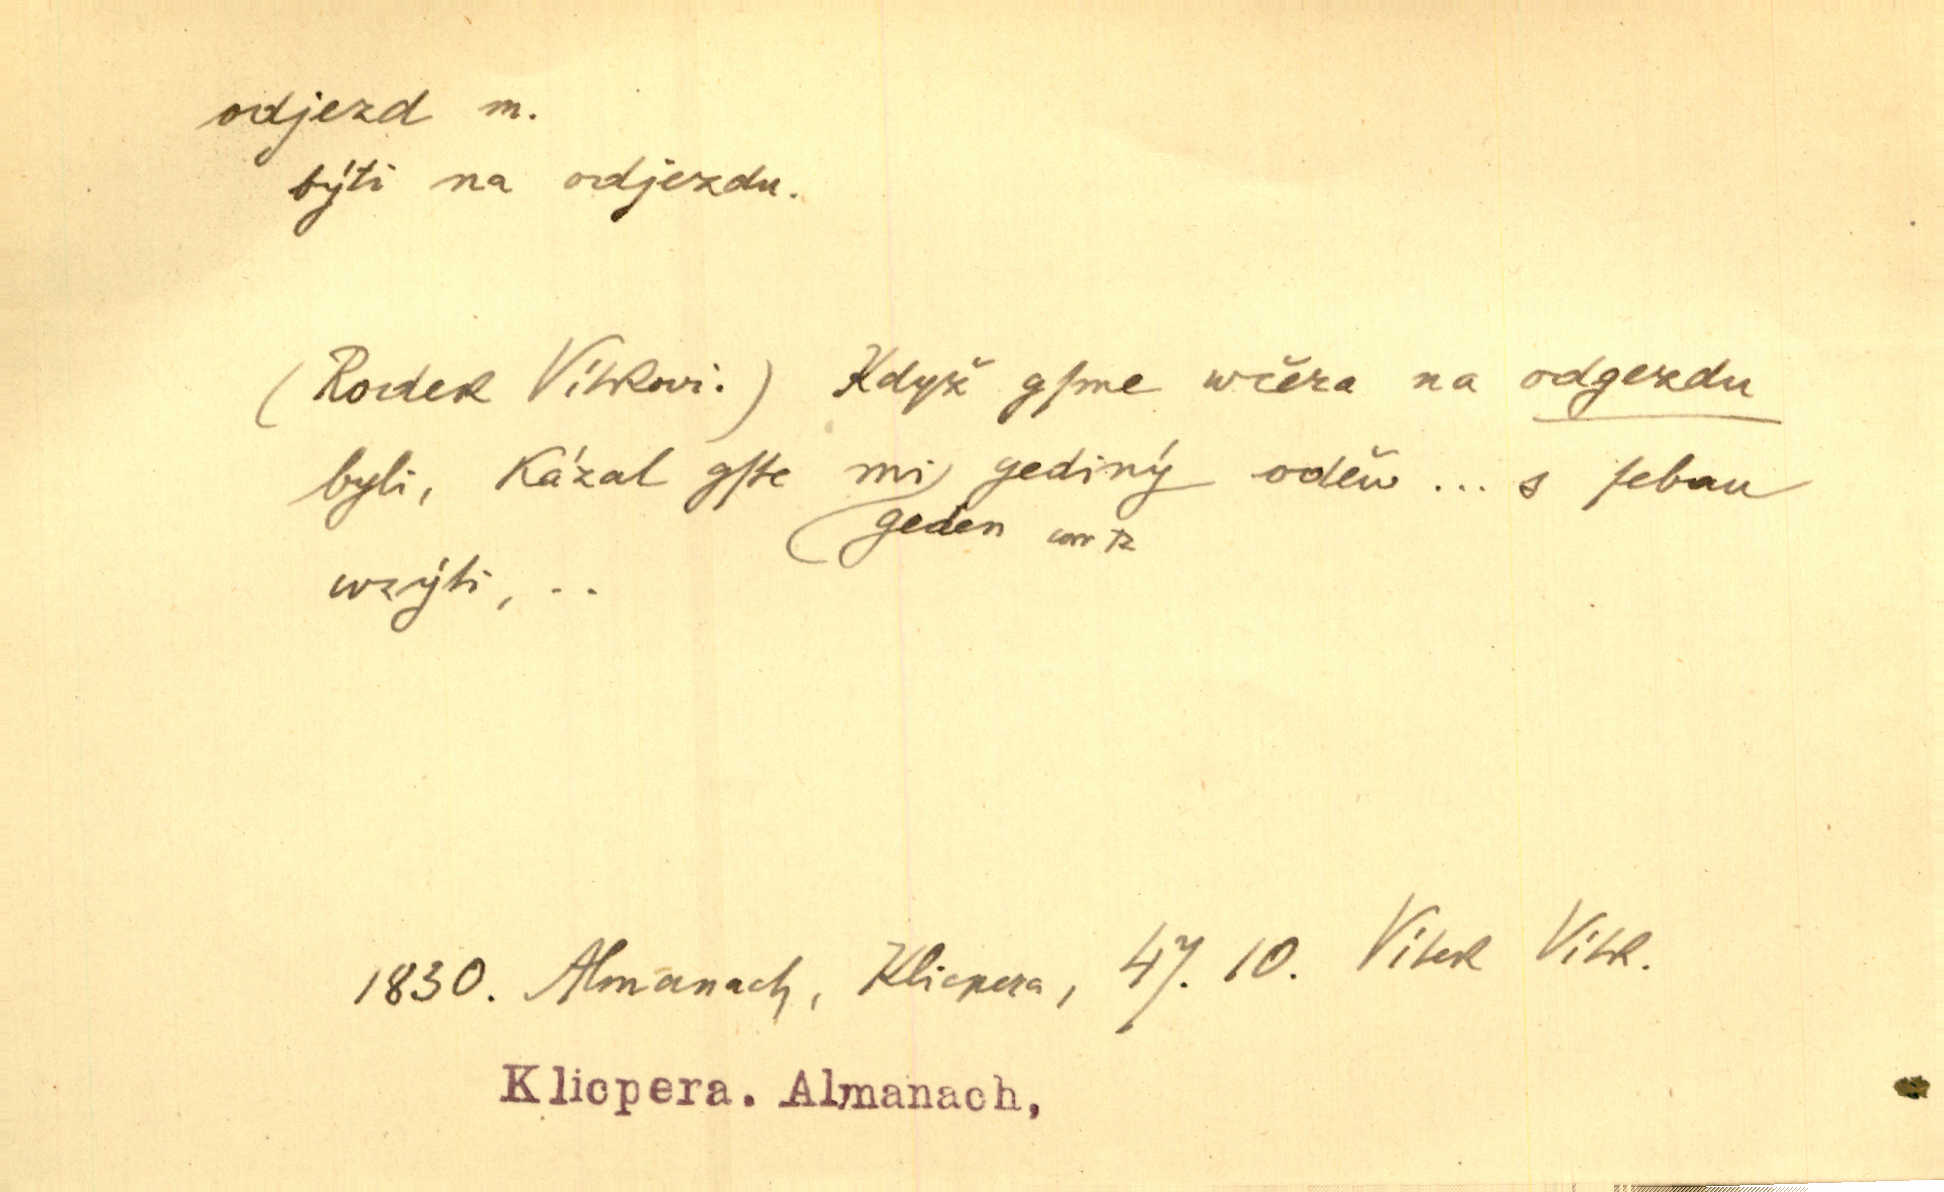 odjezd m.
býti na odjezdu.
(Rodek Vítkovi.) Když gſme wčera na odgezdu
byli, kázal gſte mi gediný oděw ... s ſebau
geden
wzýti, ..
1830. Almanach, Klicpera, 47. 10. Vítek Vítk.
Klicpera. Almanach,